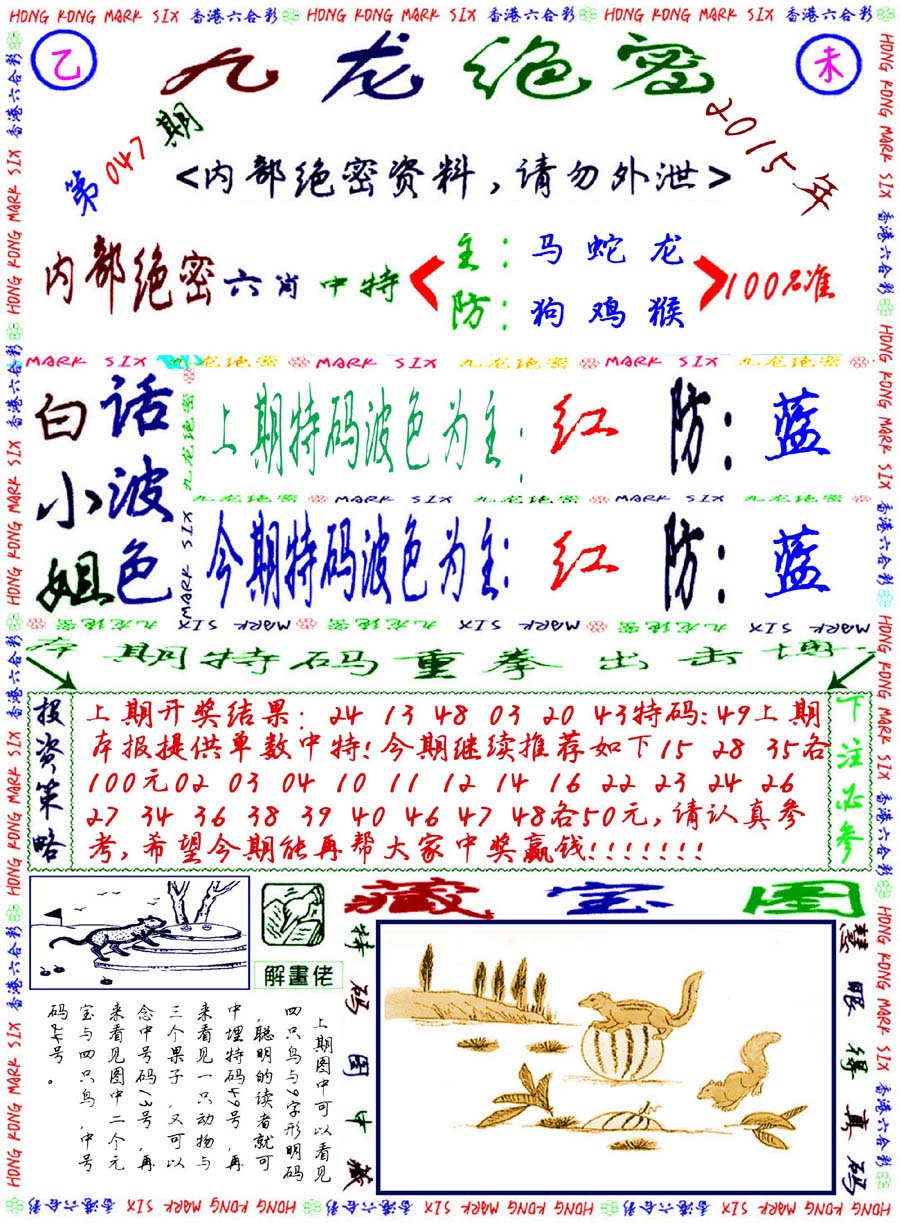 HONG KONG MARK SIX 香港六合彩 HONG KONG MARK SIX 香港六合彩 HONG KONG MARK SIX 香港六合彩
乙
九龙绝密
未
第047期
2015年
<内部绝密资料,请勿外泄>
内部绝密六肖中特
主:马蛇龙
防:狗鸡猴
100%准
MARK SIX 九龙绝密 MARK SIX 九龙绝密 MARK SIX 九龙绝密
白话
小波
姐色
上期特码波色为主:红 防:蓝
九龙绝密 MARK SIX 九龙绝密 MARK SIX 九龙绝密
今期特码波色为主:红 防:蓝
MARK SIX 九龙绝密 MARK SIX 九龙绝密 MARK SIX 九龙绝密
本期特码重拳出击博
投资策略
上期开奖结果:24 13 48 03 20 43特码:49上期
本报提供单数中特!今期继续推荐如下15 28 35各
100元02 03 04 10 11 12 14 16 22 23 24 26
27 34 36 38 39 40 46 47 48各50元,请认真参
考,希望今期能再帮大家中奖赢钱!!!!!!!
下注必参
解畫佬
藏宝图
上期图中可以看见
四只鸟与9字形明码
,聪明的读者就可
中埋特码49号,再
来看见一只动物与
三个果子,又可以
念中号码13号,再
来看见图中二个元
宝与四只鸟,中号
码24号。
特码图中藏
慧眼得真码
HONG KONG MARK SIX 香港六合彩 HONG KONG MARK SIX 香港六合彩 HONG KONG MARK SIX 香港六合彩